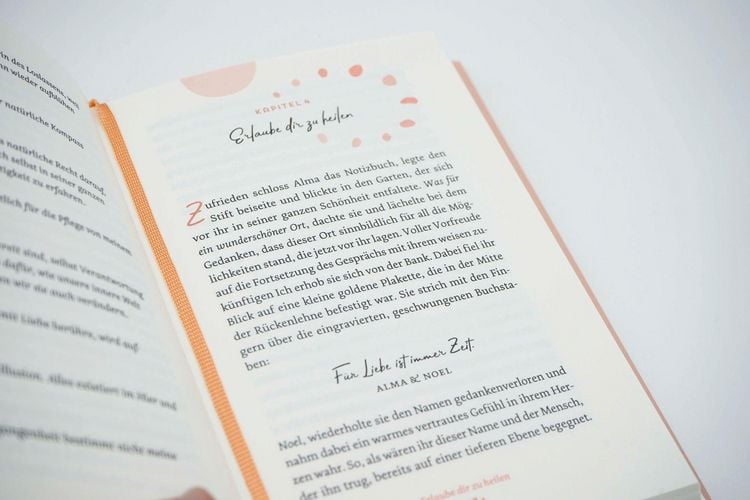 in des Loslassens, weil
nn wieder aufblühen
r natürliche Kompass
s natürliche Recht darauf,
ch selbst in seiner ganzen
tigkeit zu erfahren.
tlich für die Pflege von meinem
ereit sind, selbst Verantwortung
dafür, wie unsere innere Welt
en wir sie auch verändern.
mit Liebe berühre, wird auf
llusion. Alles existiert im Hier und
KAPITEL 4
Erlaube dir zu heilen
Zufrieden schloss Alma das Notizbuch, legte den
Stift beiseite und blickte in den Garten, der sich
vor ihr in seiner ganzen Schönheit entfaltete. Was für
ein wunderschöner Ort, dachte sie und lächelte bei dem
Gedanken, dass dieser Ort sinnbildlich für all die Mög-
lichkeiten stand, die jetzt vor ihr lagen. Voller Vorfreude
auf die Fortsetzung des Gesprächs mit ihrem weisen zu-
künftigen Ich erhob sie sich von der Bank. Dabei fiel ihr
Blick auf eine kleine goldene Plakette, die in der Mitte
der Rückenlehne befestigt war. Sie strich mit den Fin-
gern über die eingravierten, geschwungenen Buchsta-
ben:
Für Liebe ist immer Zeit.
ALMA & NOEL
Noel, wiederholte sie den Namen gedankenverloren und
nahm dabei ein warmes vertrautes Gefühl in ihrem Her-
zen wahr. So, als wären ihr dieser Name und der Mensch,
der ihn trug, bereits auf einer tieferen Ebene begegnet.
Erlaube dir zu heilen